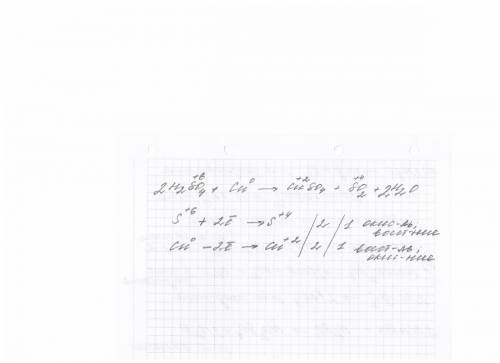 2H₂SO₄ + Cu⁰ → CuSO₄ + SO₂ + 2H₂O
+6 +2 +4
S⁺⁶ + 2ē → S⁺⁴ / 2 / 1 окис-ль, восст-ние
Cu⁰ - 2ē → Cu⁺² / 2 / 1 восст-ль, окис-ние